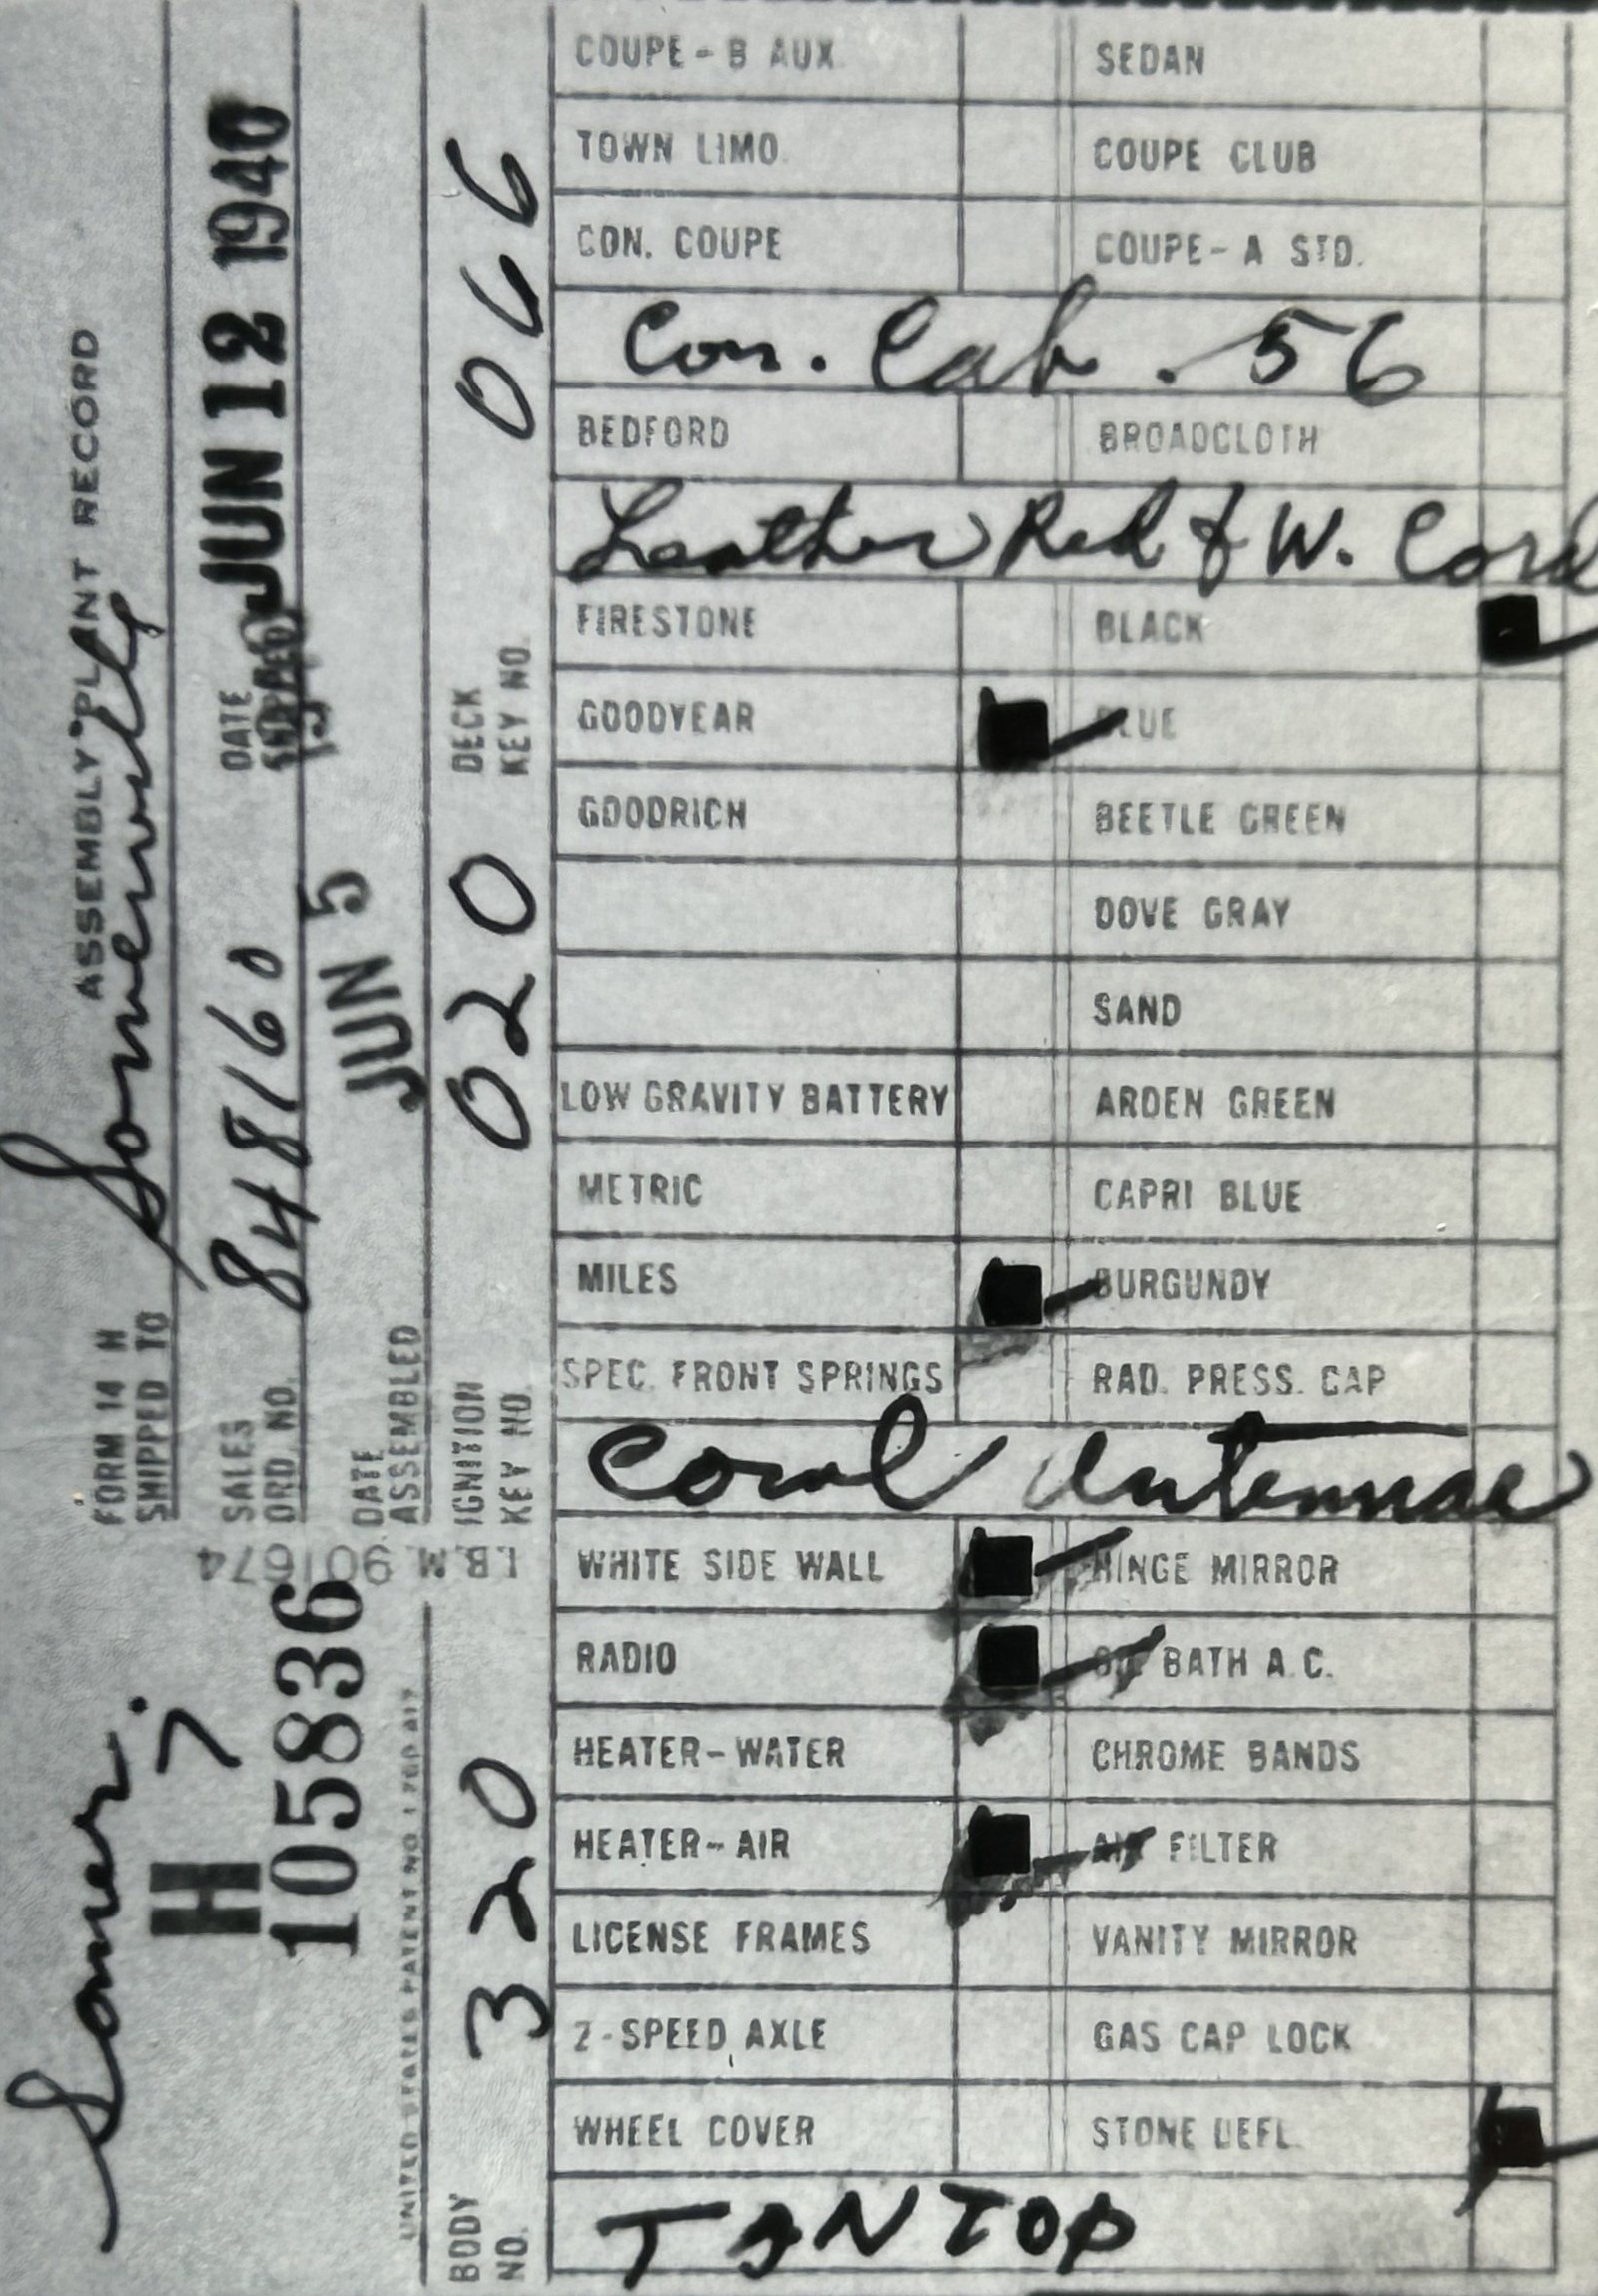 FORM 14 H ASSEMBLY PLANT RECORD
SHIPPED TO Somerville
SALES ORD. NO. 848160 DATE SHIPPED JUN 12 1940
DATE ASSEMBLED JUN 5
IGNITION KEY NO. 020 DECK KEY NO. 066
Somer.
H 7
105836
I.B.M. 901674
UNITED STATES PATENT NO
BODY NO. 320
COUPE - B AUX. SEDAN
TOWN LIMO. COUPE CLUB
CON. COUPE COUPE - A STD.
Con. Cab. 56
BEDFORD BROADCLOTH
Leather Red & W. Cord
FIRESTONE BLACK
GOODYEAR BLUE
GOODRICH BEETLE GREEN
DOVE GRAY
SAND
LOW GRAVITY BATTERY ARDEN GREEN
METRIC CAPRI BLUE
MILES BURGUNDY
SPEC. FRONT SPRINGS RAD. PRESS. CAP
Cowl Antennae
WHITE SIDE WALL HINGE MIRROR
RADIO OIL BATH A.C.
HEATER - WATER CHROME BANDS
HEATER - AIR AIR FILTER
LICENSE FRAMES VANITY MIRROR
2 - SPEED AXLE GAS CAP LOCK
WHEEL COVER STONE DEFL.
TAN TOP